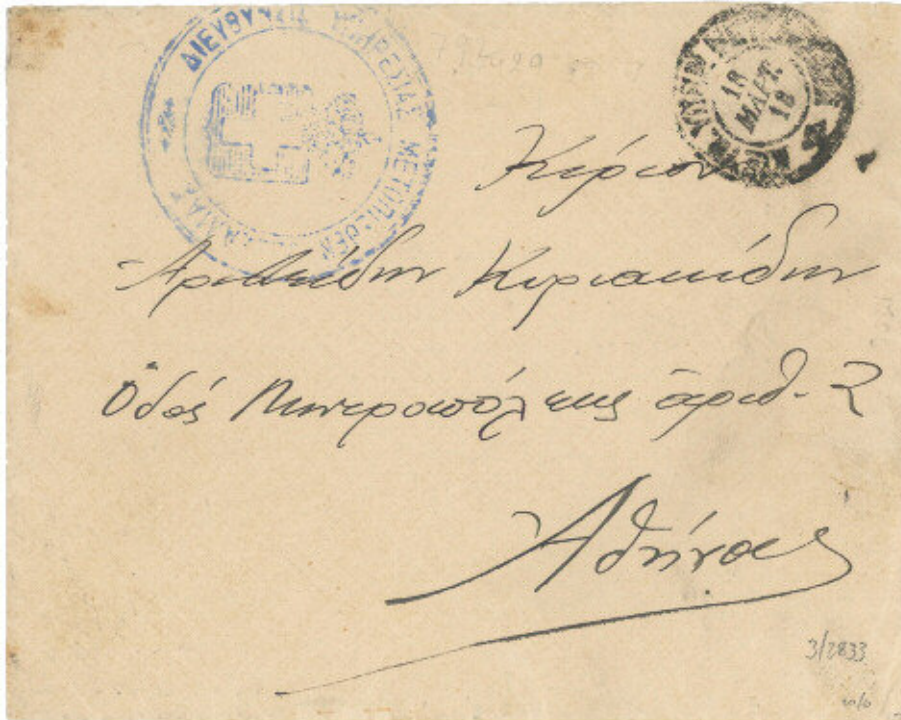 ΔΙΕΥΘΥΝΣΙΣ ΜΕΤΟΠΙΣΘΕΝ
18
ΜΑΡΤ.
18
Κύριον
Αριστείδην Κυριακίδην
Ὁδός Μητροπόλεως ἀριθ. 2
Ἀθήνας
3/2833